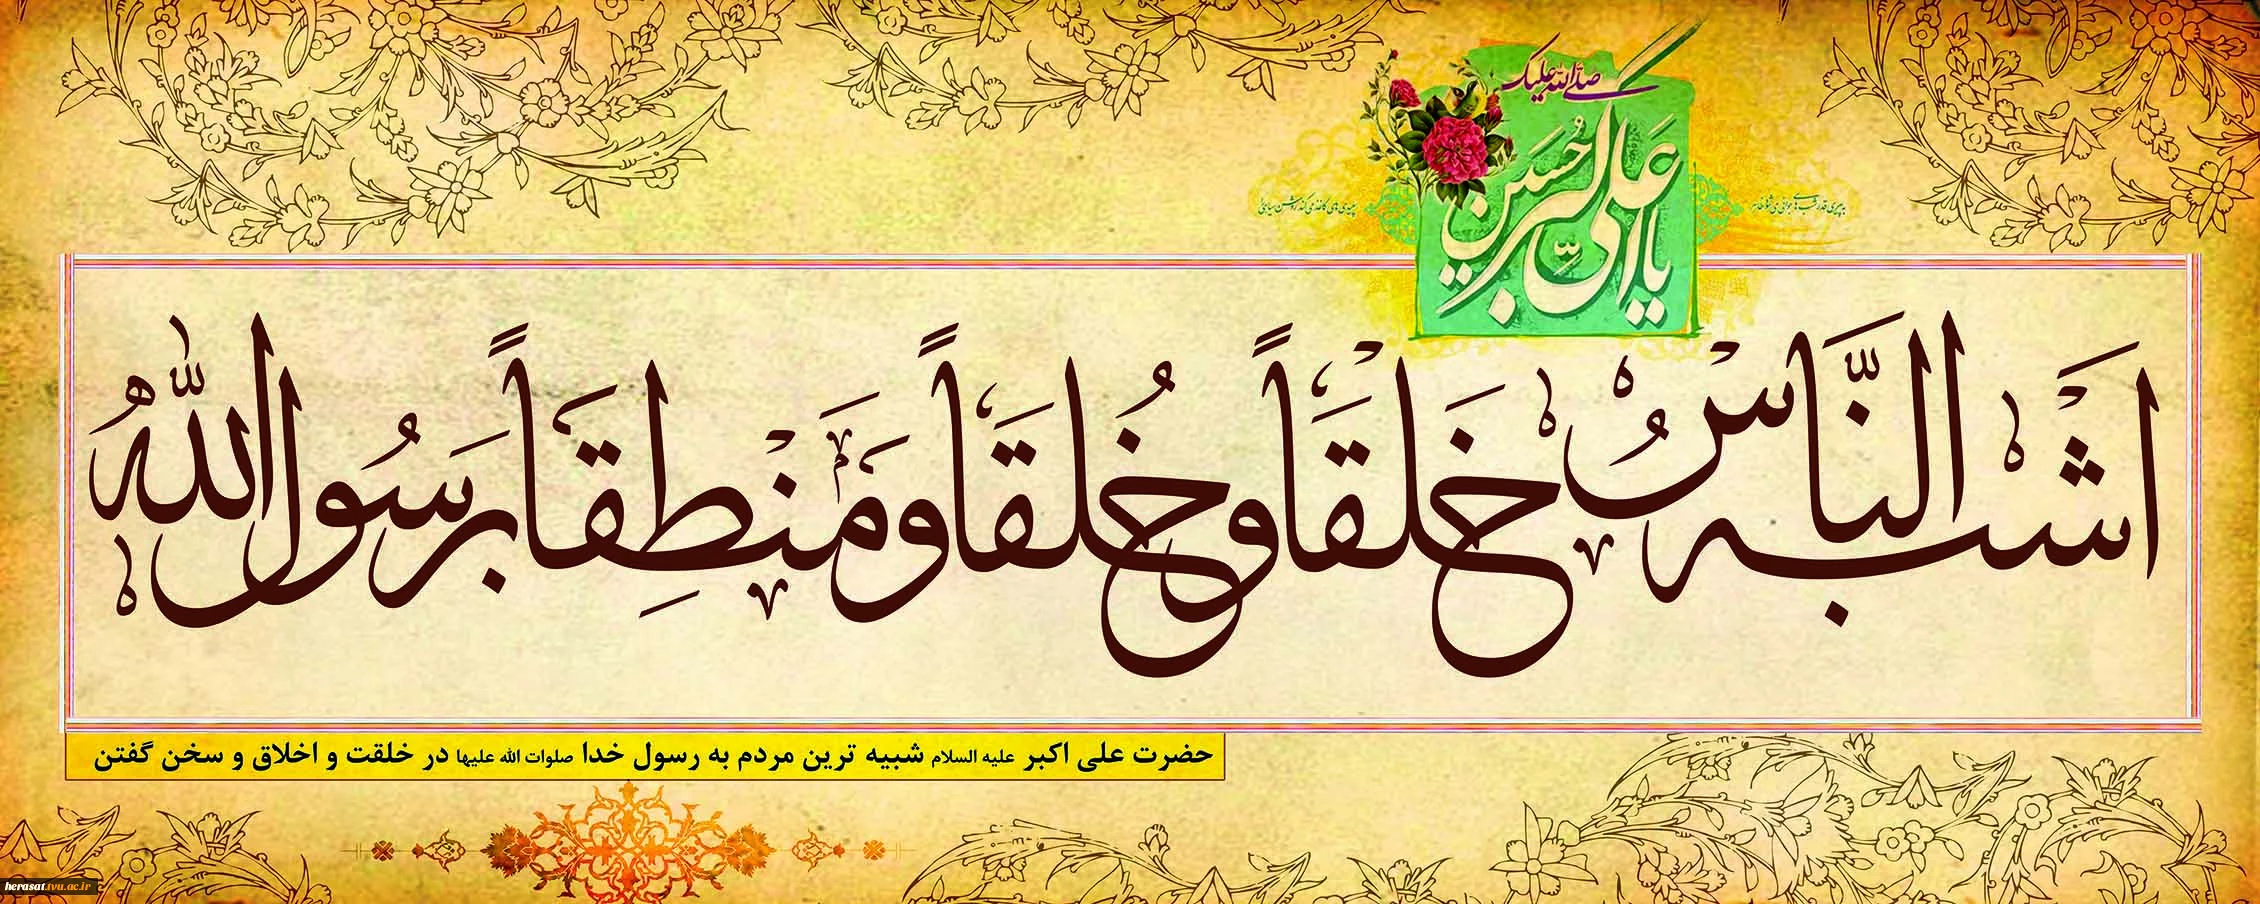 صلی الله علیک
یا علی اکبر حسین
اَشْبَهُ النّاسِ خَلْقاً وَ خُلُقاً وَ مَنْطِقاً بِرَسُولِ اللهِ
حضرت علی اکبر علیه السلام شبیه ترین مردم به رسول خدا صلوات الله علیها در خلقت و اخلاق و سخن گفتن
herasat.tvu.ac.ir